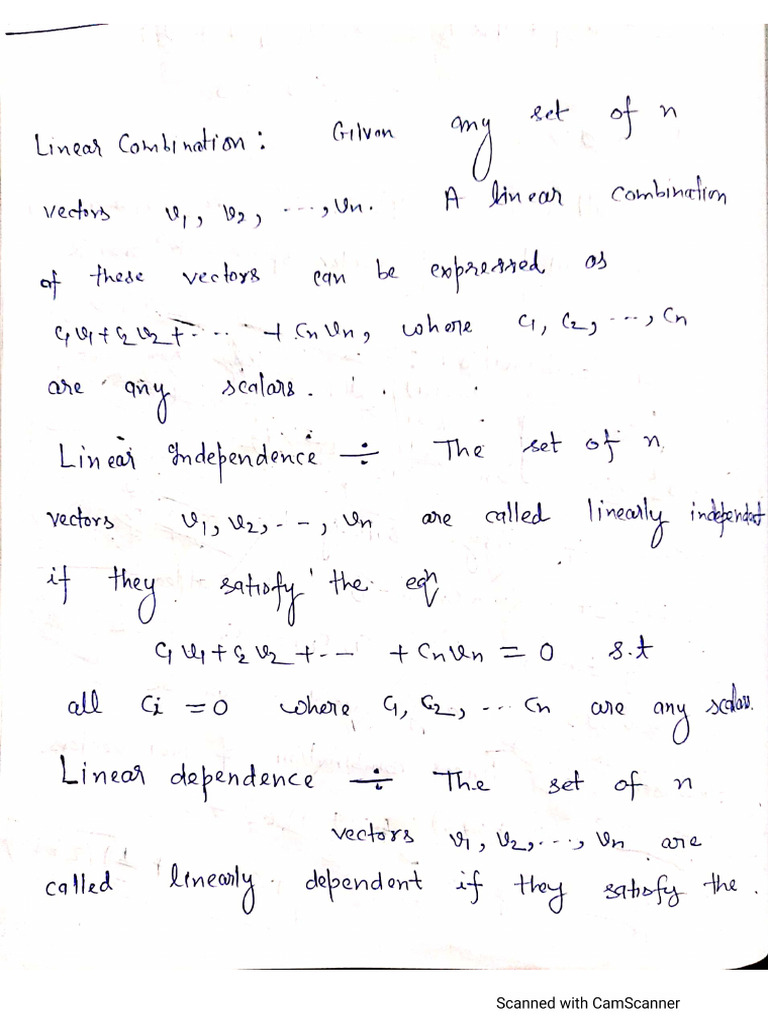 Linear Combination: Given any set of n
vectors v1, v2, ..., vn. A linear combination
of these vectors can be expressed as
c1v1+c2v2+... +cnvn, where c1, c2, ..., cn
are any scalars.
Linear Independence ÷ The set of n
vectors v1, v2, --, vn are called linearly independent
if they satisfy the eqn
c1v1+c2v2+-- +cnvn=0 s.t
all ci=0 where c1, c2, ... cn are any scalars.
Linear dependence ÷ The set of n
vectors v1, v2, ..., vn are
called linearly dependent if they satisfy the.
Scanned with CamScanner